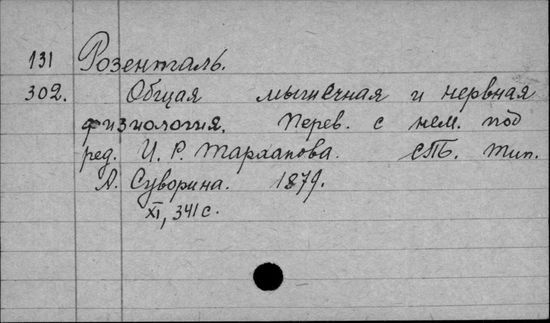 131 Розенталь.
302. Общая мышечная и нервная
физиология. Перев. с нем. под
ред. И. Р. Тарханова. СПБ. Тип.
А. Суворина. 1879.
XI, 341 с.